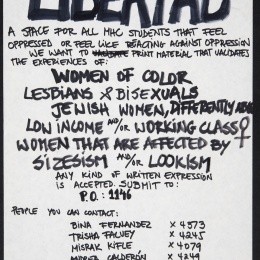 LIBERTAD
A SPACE FOR ALL MHC STUDENTS THAT FEEL
OPPRESSED OR FEEL LIKE REACTING AGAINST OPPRESSION
WE WANT TO PRINT MATERIAL THAT VALIDATES
THE EXPERIENCES OF:
WOMEN OF COLOR
LESBIANS & BISEXUALS
JEWISH WOMEN, DIFFERENTLY
LOW INCOME AND/OR WORKING CLASS
WOMEN THAT ARE AFFECTED BY
SIZESISM AND/OR LOOKISM
ANY KIND OF WRITTEN EXPRESSION
IS ACCEPTED. SUBMIT TO:
P.O.: 1146
PEOPLE YOU CAN CONTACT:
BINA FERNANDEZ x 4373
TRISHA FALVEY x 4245
MISRAK KIFLE x 4079
ANDREA CALDERÓN x 4249